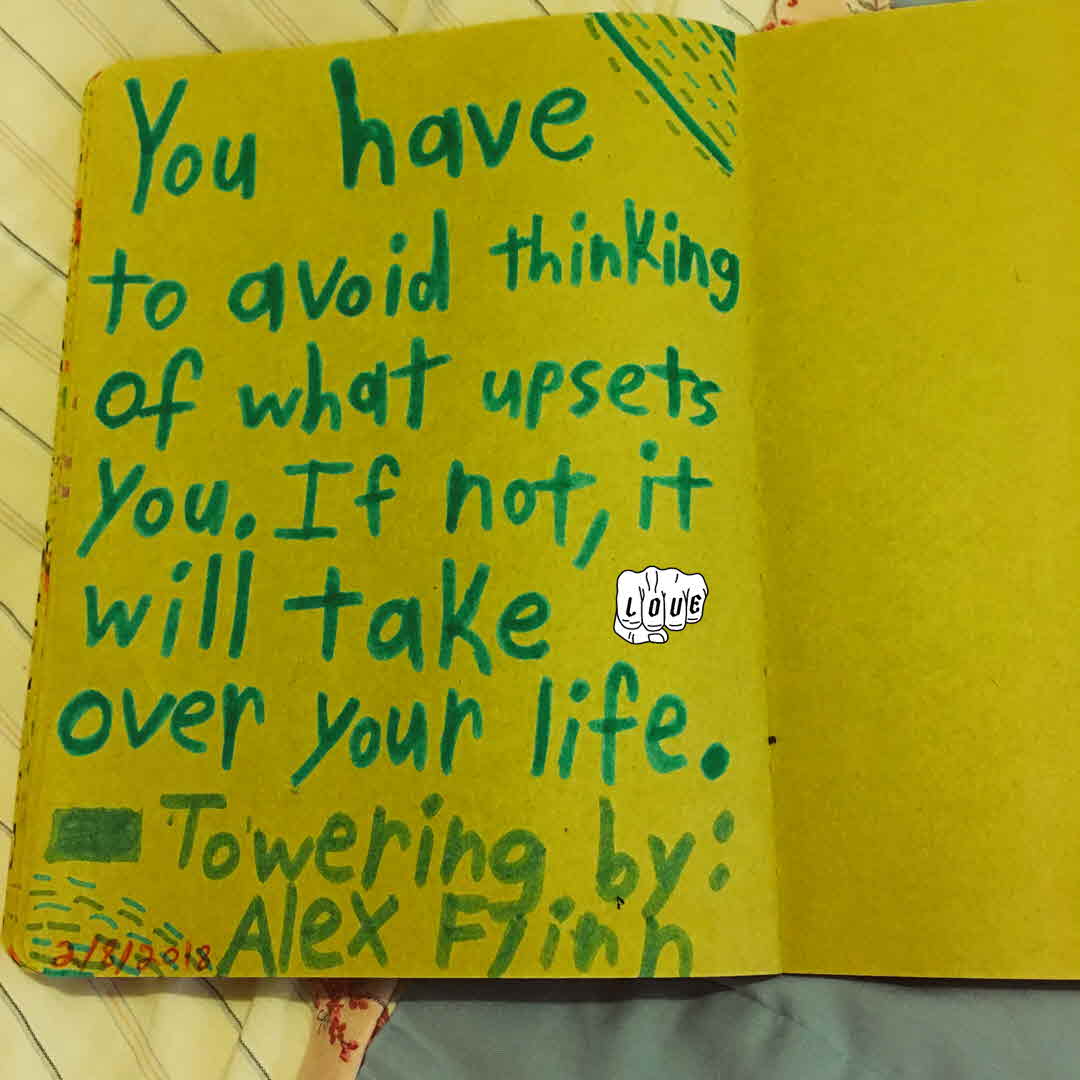 You have
to avoid thinking
of what upsets
you. If not, it
will take
LOVE
over your life.
Towering by:
Alex Flinn
2/8/2018